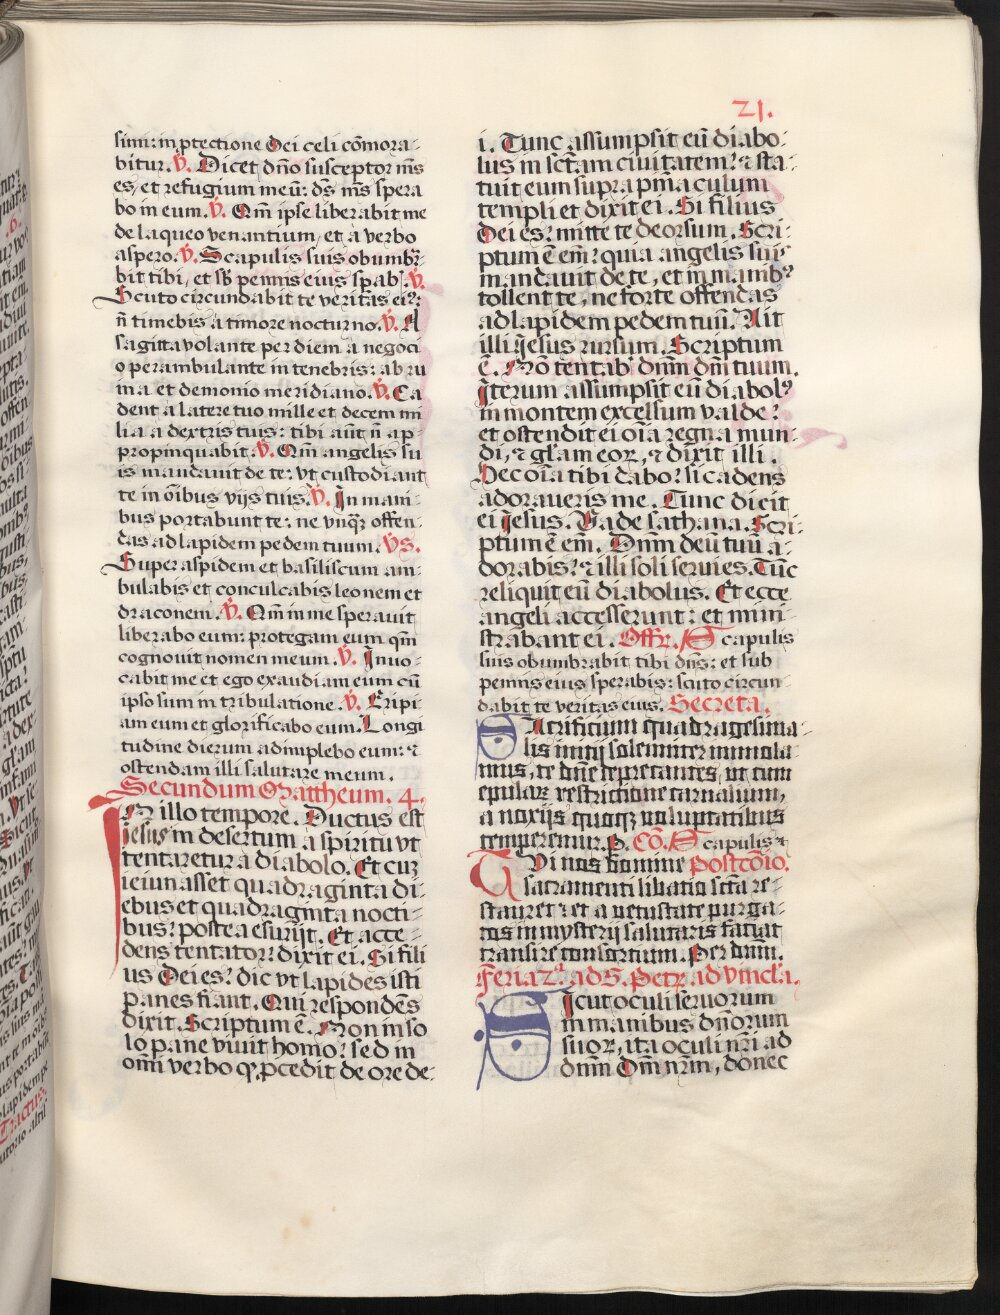 21.
simi: in ꝓtectione dei celi cōmora-
bitur. V̄. Dicet dn̄o susceptor me᷒
es, et refugium meū: ds̄ ms̄ spera
bo in eum. V̄. Qm̄ ipse liberabit me
de laqueo venantium, et a verbo
aspero. V̄. Scapulis suis obumbr̄-
bit tibi, et sb̄ pennis eius spab̄. V̄.
Scuto circundabit te veritas ei᷒:
n̄ timebis a timore nocturno. V̄. A
sagitta volante per diem a negoci
o perambulante in tenebris: ab ru
ina et demonio meridiano. V̄. Ca
dent a latere tuo mille et decem mi
lia a dextris tuis: tibi aūt n̄ ap-
propinquabit. V̄. Qm̄ angelis su
is mandauit de te: vt custodiant
te in oībus vijs tuis. V̄. In mani-
bus portabunt te: ne vnqꝫ offen-
das ad lapidem pedem tuum. Vs.
Super aspidem et basiliscum am-
bulabis et conculcabis leonem et
draconem. V̄. Qm̄ in me sperauit
liberabo eum: protegam eum qm̄
cognouit nomen meum. V̄. Inuo-
cabit me et ego exaudiam eum cū
ipso sum in tribulatione. V̄. Eripi-
am eum et glorificabo eum. Longi
tudine dierum adimplebo eum: ⁊
ostendam illi salutare meum.
Secundum Mattheum. 4.
In illo tempore. Ductus est
Jesus in desertum a spiritu vt
tentaretur a diabolo. Et cuꝫ
ieiunasset quadraginta di-
ebus et quadraginta nocti-
bus: postea esurijt. Et acce-
dens tentator: dixit ei. Si fili
us Dei es: dic vt lapides isti
panes fiant. Qui respondēs
dixit. Scriptum ē. Non in so
lo pane viuit homo: sed in
omī verbo q̄ ꝓcedit de ore de-
i. Tunc assumpsit eū diabo-
lus in sctam ciuitatem: ⁊ sta-
tuit eum supra pinaculum
templi et dixit ei. Si filius
Dei es: mitte te deorsum. Scri-
ptum ē em̄: quia angelis suis
mandauit de te, et in manibꝰ
tollent te, ne forte offendas
ad lapidem pedem tuū. Ait
illi Jesus rursum. Scriptum
ē. Nō tentab̄ dnm̄ dm̄ tuum.
Iterum assumpsit eū diabolꝰ
in montem excelsum valde:
et ostendit ei oīa regna mun-
di, ⁊ glam eoꝝ, ⁊ dixit illi.
Hec oīa tibi dabo: si cadens
adoraueris me. Tunc dicit
ei Jesus. Vade sathana. Scri-
ptum ē em̄. Dnm̄ deū tuū a-
dorabis: ⁊ illi soli seruies. Tūc
reliquit eū diabolus. Et ecce
angeli accesserunt: et mini-
strabant ei. Offr̄. Scapulis
suis obumbrabit tibi dn̄s: et sub
pennis eius sperabis: scuto circun-
dabit te veritas eius. Secreta.
Sacrificium quadragesima-
lis initij solemniter immola
mus, te dn̄e deprecantes, ut cum
epularꝝ restrictione carnalium,
a noxijs quoqꝫ voluptatibus
temperemur. P. Cō. Scapulis ⁊
Tui nos domine Postcōio.
sacramenti libatio scta re-
stauret: et a vetustate purga-
tos in mysterij salutaris faciat
transire consortium. Per dnm̄.
Feria 2ª. ad S. Petꝝ ad vincla.
Sicut oculi seruorum
in manibus dn̄orum
suoꝝ, ita oculi nr̄i ad
dnm̄ Dm̄ nrm̄, donec